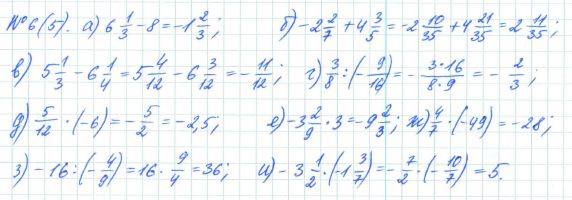 №6(5). а) 6 1/3 - 8 = -1 2/3; б) -2 2/7 + 4 3/5 = -2 10/35 + 4 21/35 = 2 11/35;
в) 5 1/3 - 6 1/4 = 5 4/12 - 6 3/12 = - 11/12; г) 3/8 : (- 9/16) = - 3·16/8·9 = - 2/3;
д) 5/12 · (-6) = - 5/2 = -2,5; е) -3 2/9 · 3 = -9 2/3; ж) 4/7 · (-49) = -28;
з) -16 : (- 4/9) = 16 · 9/4 = 36; и) -3 1/2 · (-1 3/7) = - 7/2 · (- 10/7) = 5.